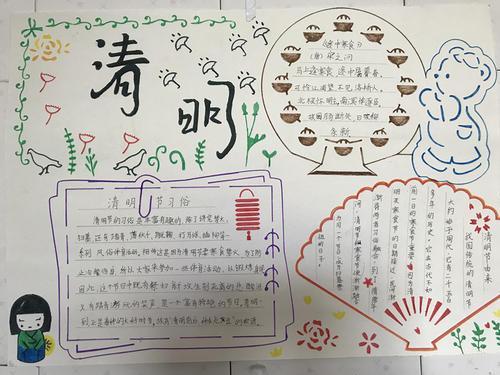 清明
《途中寒食》
（唐）宋之问
马上逢寒食，途中属暮春。
可怜江浦望，不见洛桥人。
北极怀明主，南溟作逐臣。
故园肠断处，日夜柳
条新。
清明节习俗
清明节的习俗是丰富有趣的，除了讲究禁火、
扫墓，还有踏青、荡秋千、蹴鞠、打马球、插柳等一
系列风俗体育活动。相传这是因为清明节要寒食禁火，为了防
止冷餐伤身，所以大家来参加一些体育活动，以锻炼身体。
因此，这个节日中既有祭扫新坟生别死离的悲酸泪，
又有踏青游玩的笑声，是一个富有特色的节日。清明
到正是春种的大好时节，故有"清明前后，种瓜点豆"的农谚。
清明节由来
我国传统的清明节
大约始于周代，已有二千五百
多年的历史。在古代不如
前一日的寒食节重要，因为清
明及寒食节的日期接近，民间
渐渐将两者习俗融合，到了隋唐年
间，清明节和寒食节便渐渐融合
为同一个节日，成为扫墓祭
祖的日子。